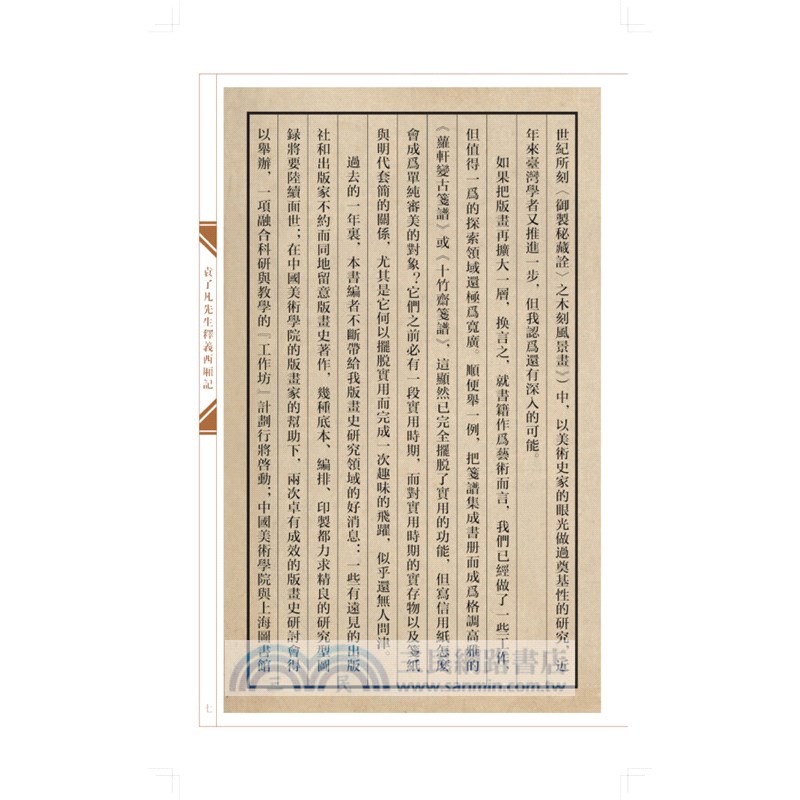 世紀所刻〈御製秘藏詮〉之木刻風景畫》）中，以美術史家的眼光做過奠基性的研究，近
年來臺灣學者又推進一步，但我認爲還有深入的可能。
如果把版畫再擴大一層，換言之，就書籍作爲藝術而言，我們已經做了一些工作，
但值得一爲的探索領域還極爲寬廣。順便舉一例，把箋譜集成書册而成爲格調高雅的
《蘿軒變古箋譜》或《十竹齋箋譜》，這顯然已完全擺脱了實用的功能，但寫信用紙怎麽
會成爲單純審美的對象？它們之前必有一段實用時期，而對實用時期的實存物以及箋紙
與明代套簡的關係，尤其是它何以擺脱實用而完成一次趣味的飛躍，似乎還無人問津。
過去的一年裏，本書編者不斷帶給我版畫史研究領域的好消息：一些有遠見的出版
社和出版家不約而同地留意版畫史著作，幾種底本、編排、印製都力求精良的研究型圖
録將要陸續面世；在中國美術學院的版畫家的幫助下，兩次卓有成效的版畫史研討會得
以舉辦，一項融合科研與教學的『工作坊』計劃行將啓動；中國美術學院與上海圖書館
袁了凡先生釋義西廂記
七
三民網路書店
三民
www.sanmin.com.tw